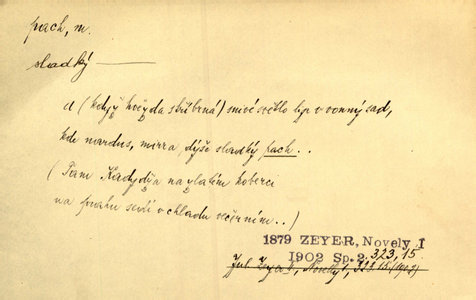 pach, m.
sladký ———
a (když hvězda stříbrná) snivé světlo lije v vonný sad,
kde nardus, mirra, dýše sladký pach . .
(Tam Kadydža na zlatém koberci
na prahu sedí v chladu večerním . .)
1879 ZEYER, Novely I
1902 Sp. 2, 323, 15.
Jul. Zeyer, Novely I, 323 15 (1902)